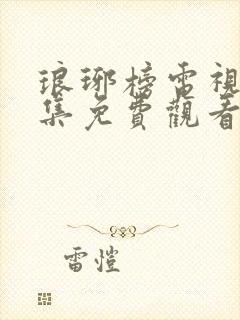 琅琊榜電視
集免費觀看
雷愷